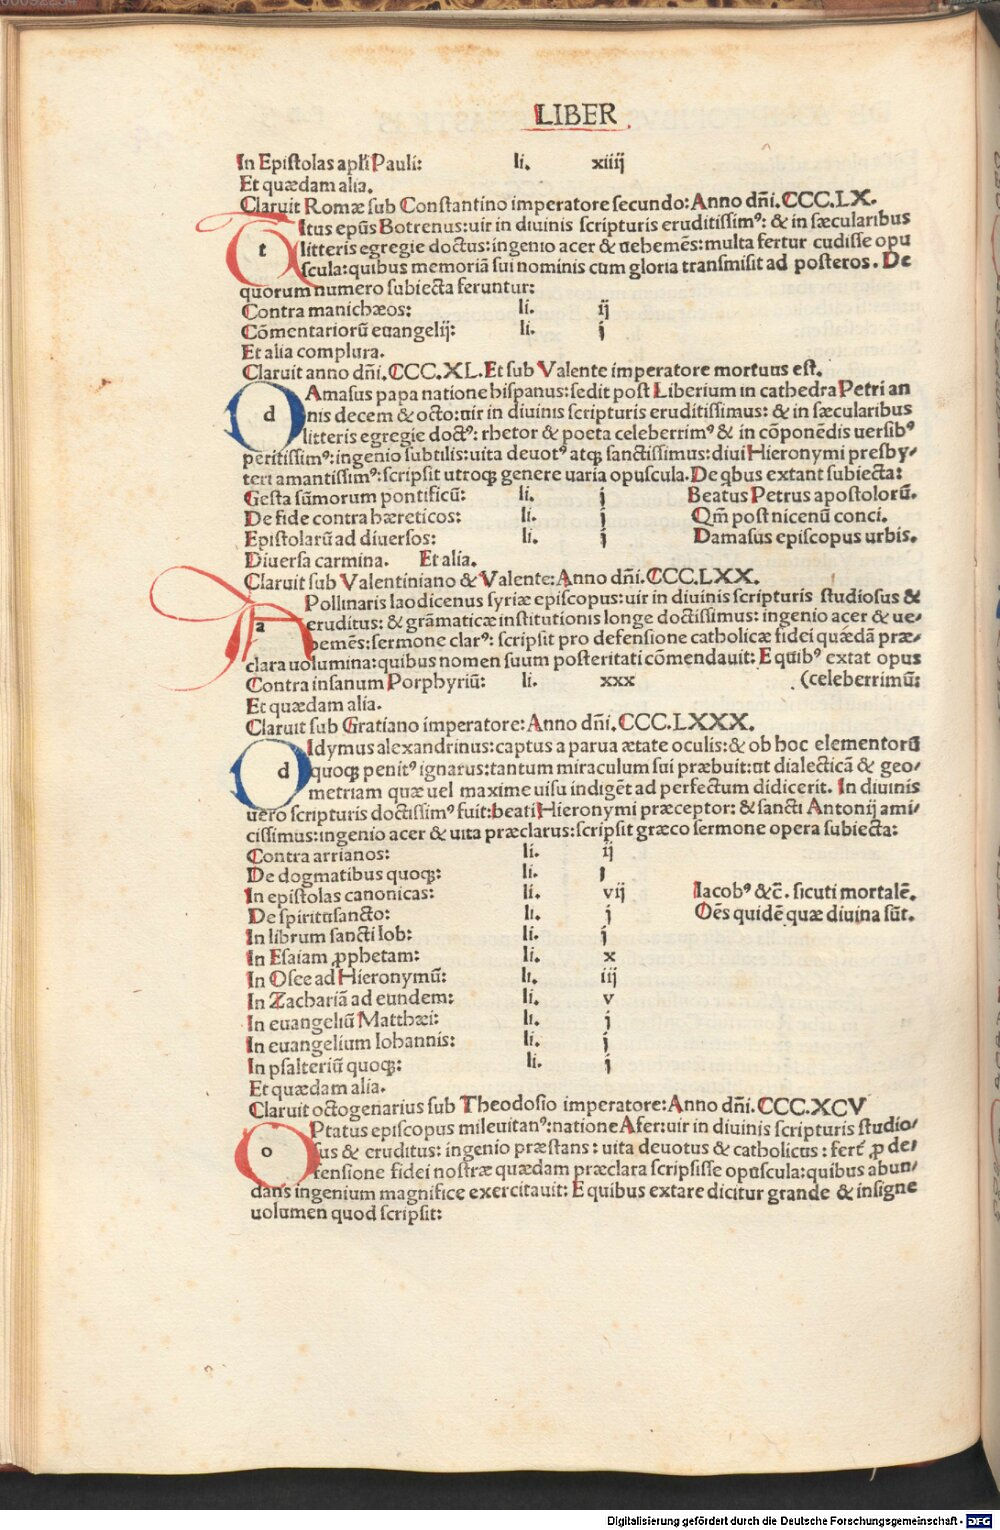 LIBER
In Epistolas apłi Pauli: li. xiiij
Et quædam alia.
Claruit Romæ sub Constantino imperatore secundo: Anno dñi. CCC.LX.
t Itus epūs Botrenus: uir in diuinis scripturis eruditissimꝰ: & in sæcularibus
litteris egregie doctus: ingenio acer & uehemēs: multa fertur cudisse opu
scula: quibus memoriā sui nominis cum gloria transmisit ad posteros. De
quorum numero subiecta feruntur:
Contra manichæos: li. ij
Cōmentariorū euangelij: li. j
Et alia complura.
Claruit anno dñi. CCC.XL. Et sub Valente imperatore mortuus est.
d Amasus papa natione hispanus: sedit post Liberium in cathedra Petri an
nis decem & octo: uir in diuinis scripturis eruditissimus: & in sæcularibus
litteris egregie doctꝰ: rhetor & poeta celeberrimꝰ & in cōponēdis uersibꝰ
peritissimꝰ: ingenio subtilis: uita deuotꝰ atqꝫ sanctissimus: diui Hieronymi presby-
teri amantissimꝰ: scripsit utroqꝫ genere uaria opuscula. De qbus extant subiecta:
Gesta sūmorum pontificū: li. j Beatus Petrus apostolorū.
De fide contra hæreticos: li. j Qm̄ post nicenū conci.
Epistolarū ad diuersos: li. j Damasus episcopus urbis.
Diuersa carmina. Et alia.
Claruit sub Valentiniano & Valente: Anno dñi. CCC.LXX.
a Pollinaris laodicenus syriæ episcopus: uir in diuinis scripturis studiosus &
eruditus: & grāmaticæ institutionis longe doctissimus: ingenio acer & ue-
hemēs: sermone clarꝰ: scripsit pro defensione catholicæ fidei quædā præ-
clara uolumina: quibus nomen suum posteritati cōmendauit: E quibꝰ extat opus
Contra insanum Porphyriū: li. xxx (celeberrimū:
Et quædam alia.
Claruit sub Gratiano imperatore: Anno dñi. CCC.LXXX.
d Idymus alexandrinus: captus a parua ætate oculis: & ob hoc elementorū
quoqꝫ penitꝰ ignarus: tantum miraculum sui præbuit: ut dialecticā & geo-
metriam quæ uel maxime uisu indigēt ad perfectum didicerit. In diuinis
uero scripturis doctissimꝰ fuit: beati Hieronymi præceptor: & sancti Antonij ami-
cissimus: ingenio acer & uita præclarus: scripsit græco sermone opera subiecta:
Contra arrianos: li. ij
De dogmatibus quoqꝫ: li. j
In epistolas canonicas: li. vij Iacobꝰ &c̄. sicuti mortalē.
De spiritusancto: li. j Oēs quidē quæ diuina sūt.
In librum sancti Iob: li. j
In Esaiam ꝓphetam: li. x
In Osee ad Hieronymū: li. iij
In Zachariā ad eundem: li. v
In euangeliū Matthæi: li. j
In euangelium Iohannis: li. j
In psalteriū quoqꝫ: li. j
Et quædam alia.
Claruit octogenarius sub Theodosio imperatore: Anno dñi. CCC.XCV
o Ptatus episcopus mileuitanꝰ: natione Afer: uir in diuinis scripturis studio-
sus & eruditus: ingenio præstans: uita deuotus & catholicus: fert̄ ꝓ de-
fensione fidei nostræ quædam præclara scripsisse opuscula: quibus abun-
dans ingenium magnifice exercitauit: E quibus extare dicitur grande & insigne
uolumen quod scripsit:
Digitalisierung gefördert durch die Deutsche Forschungsgemeinschaft - DFG